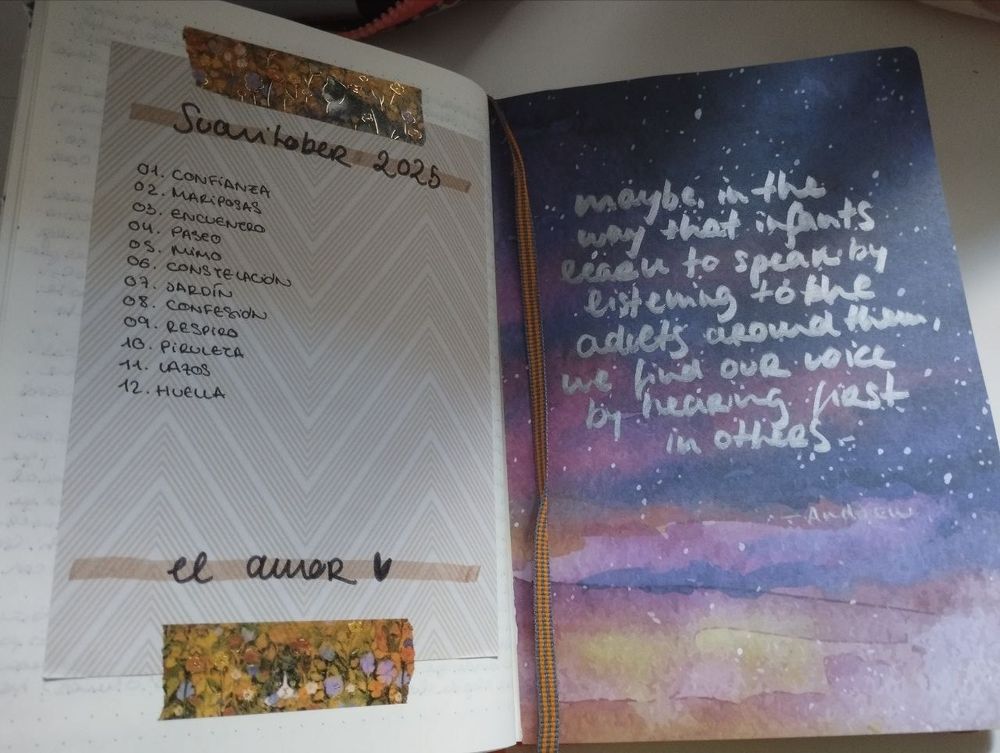 Suavitober 2025
01. CONFIANZA
02. MARIPOSAS
03. ENCUENTRO
04. PASEO
05. MIMO
06. CONSTELACIÓN
07. JARDÍN
08. CONFESIÓN
09. RESPIRO
10. PIRULETA
11. LAZOS
12. HUELLA
el amor
maybe, in the
way that infants
learn to speak by
listening to the
adults around them,
we find our voice
by hearing first
in others.
- Andrew